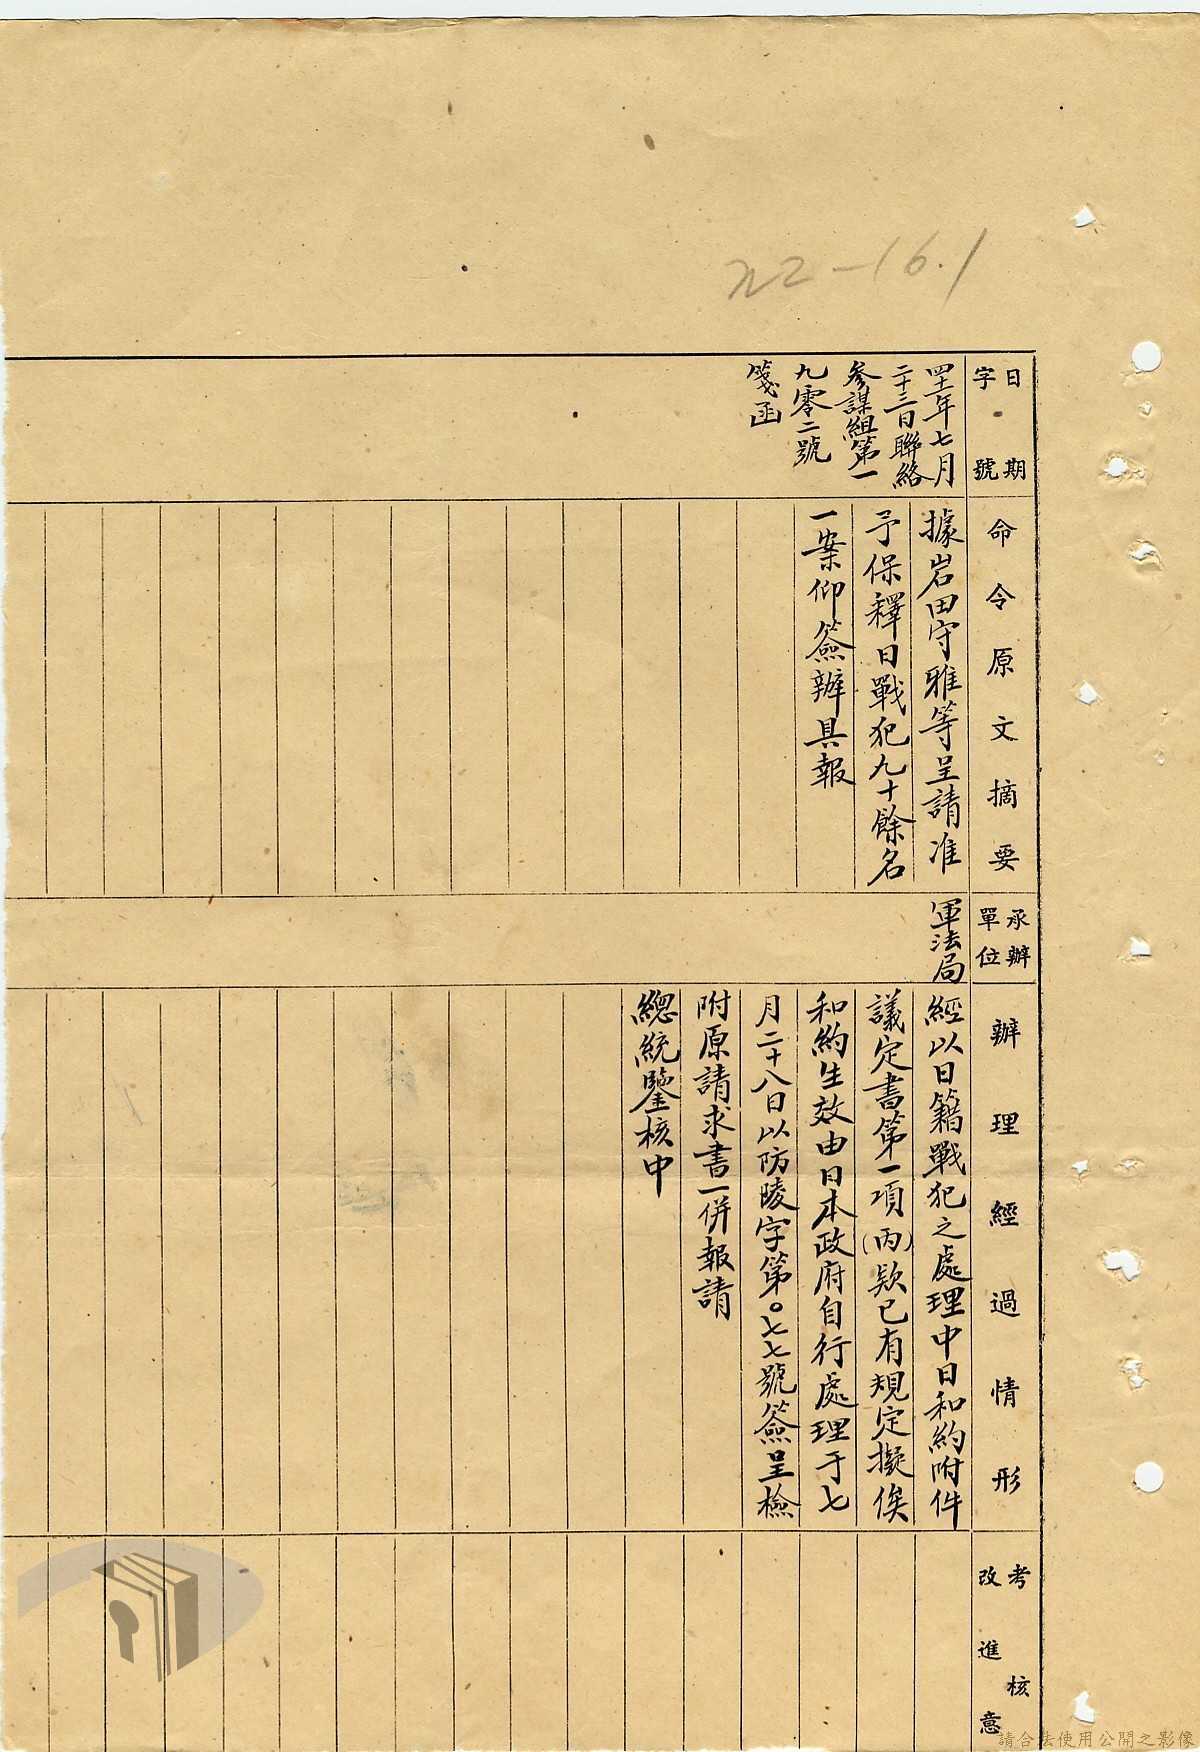 22-16.1
日期
字號
四十一年七月
二十三日聯絡
參謀組第一
九零二號
箋函
命令原文摘要
據岩田守雅等呈請准
予保釋日戰犯九十餘名
一案仰簽辦具報
承辦
單位
軍法局
辦理經過情形
經以日籍戰犯之處理中日和約附件
議定書第一項(丙)欵已有規定擬俟
和約生效由日本政府自行處理于七
月二十八日以防陵字第〇七七號簽呈檢
附原請求書一併報請
總統鑒核中
考核
改進意
請合法使用公開之影像